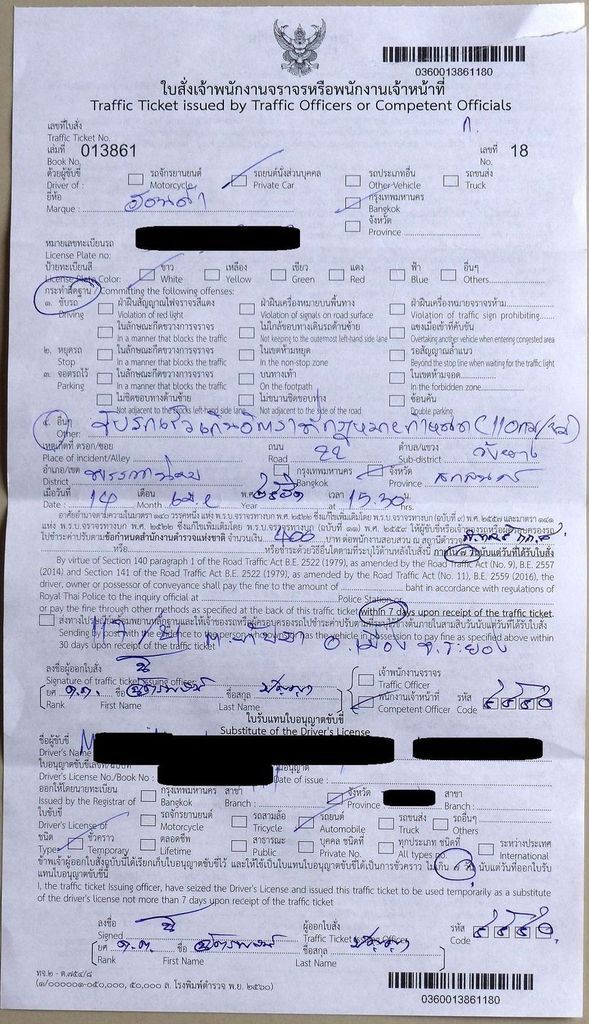 0360013861180
ใบสั่งเจ้าพนักงานจราจรหรือพนักงานเจ้าหน้าที่
Traffic Ticket issued by Traffic Officers or Competent Officials
ก.
เลขที่ใบสั่ง
Traffic Ticket No.
เล่มที่ 013861 เลขที่ 18
Book No. No.
ด้วยผู้ขับขี่ รถจักรยานยนต์ รถยนต์นั่งส่วนบุคคล รถประเภทอื่น รถขนส่ง
Driver of : Motorcycle Private Car Other Vehicle Truck
ยี่ห้อ ฮอนด้า กรุงเทพมหานคร
Marque : Bangkok
จังหวัด
Province
หมายเลขทะเบียนรถ
License Plate no:
ป้ายทะเบียนสี ขาว เหลือง เขียว แดง ฟ้า อื่นๆ
License Plate Color: White Yellow Green Red Blue Others
กระทำผิดฐาน / Committing the following offenses:
๑. ขับรถ ฝ่าฝืนสัญญาณไฟจราจรสีแดง ฝ่าฝืนเครื่องหมายบนพื้นทาง ฝ่าฝืนเครื่องหมายจราจรห้าม
Driving Violation of red light Violation of signals on road surface Violation of traffic sign prohibiting
ในลักษณะกีดขวางการจราจร ไม่ใกล้ขอบทางเดินรถด้านซ้าย แซงเมื่อเข้าที่คับขัน
In a manner that blocks the traffic Not keeping to the outermost left-hand side lane Overtaking another vehicle when entering congested area
๒. หยุดรถ ในลักษณะกีดขวางการจราจร ในเขตห้ามหยุด รอสัญญาณล้ำแนว
Stop In a manner that blocks the traffic In the non-stop zone Beyond the stop line when waiting for the traffic light
๓. จอดรถไว้ ในลักษณะกีดขวางการจราจร บนทางเท้า ในเขตห้ามจอด
Parking In a manner that blocks the traffic On the footpath In the forbidden zone
ไม่ชิดขอบทางด้านซ้าย ไม่ขนานชิดขอบทาง ซ้อนคัน
Not adjacent to the blocks left-hand side lane Not adjacent to the side of the road Double parking
๔. อื่นๆ ขับรถเร็วเกินอัตราที่กฎหมายกำหนด (110 กม/ชม)
Other:
เหตุเกิดที่ ตรอก/ซอย ถนน 22 ตำบล/แขวง
Place of incident/Alley Road Sub-district
อำเภอ/เขต กรุงเทพมหานคร จังหวัด สกลนคร
District Bangkok Province
เมื่อวันที่ 14 เดือน เม.ย พ.ศ. ๒๕๖๑ เวลา 15.30 น.
Date : Month Year at hrs.
อาศัยอำนาจตามความในมาตรา ๑๔๐ วรรคหนึ่ง แห่ง พ.ร.บ.จราจรทางบก พ.ศ. ๒๕๒๒ ซึ่งแก้ไขเพิ่มเติมโดย พ.ร.บ.จราจรทางบก (ฉบับที่ ๙) พ.ศ. ๒๕๕๗ และมาตรา ๑๔๑
แห่ง พ.ร.บ.จราจรทางบก พ.ศ. ๒๕๒๒ ซึ่งแก้ไขเพิ่มเติมโดย พ.ร.บ.จราจรทางบก (ฉบับที่ ๑๑) พ.ศ. ๒๕๕๙ ให้ผู้ขับขี่หรือเจ้าของรถหรือผู้ครอบครองรถ
ไปชำระค่าปรับตามข้อกำหนดสำนักงานตำรวจแห่งชาติ จำนวนเงิน 400 บาท ต่อพนักงานสอบสวน ณ สถานีตำรวจ
หรือ หรือชำระด้วยวิธีอื่นใดตามที่ระบุไว้ด้านหลังใบสั่งนี้ ภายใน ๗ วันนับแต่วันที่ได้รับใบสั่ง
By virtue of Section 140 paragraph 1 of the Road Traffic Act B.E. 2522 (1979), as amended by the Road Traffic Act (No. 9), B.E. 2557
(2014) and Section 141 of the Road Traffic Act B.E. 2522 (1979), as amended by the Road Traffic Act (No. 11), B.E. 2559 (2016), the
driver, owner or possessor of conveyance shall pay the fine to the amount of baht in accordance with regulations of
Royal Thai Police to the inquiry official at Police Station or
or pay the fine through other methods as specified at the back of this traffic ticket within 7 days upon receipt of the traffic ticket.
ส่งทางไปรษณีย์
Sending by post
30 days upon receipt of the traffic ticket
117/21 ต.ทับมา อ.เมือง จ.ระยอง
ลงชื่อผู้ออกใบสั่ง
Signature of traffic ticket issuing officer
เจ้าพนักงานจราจร
Traffic Officer
ยศ ด.ต. ชื่อ ชื่อสกุล พนักงานเจ้าหน้าที่ รหัส
Rank First Name Last Name Competent Officer Code
ใบรับแทนใบอนุญาตขับขี่
Substitute of the Driver's License
ชื่อผู้ขับขี่
Driver's Name
ใบอนุญาตขับขี่เลขที่/ฉบับที่
Driver's License No./Book No : Date of issue :
ออกให้โดยนายทะเบียน กรุงเทพมหานคร สาขา จังหวัด สาขา
Issued by the Registrar of Bangkok Branch : Province Branch :
ใบขับขี่ รถจักรยานยนต์ รถสามล้อ รถยนต์ รถขนส่ง รถอื่นๆ
Driver's License of Motorcycle Tricycle Automobile Truck Others
ชนิด ชั่วคราว ตลอดชีพ สาธารณะ บุคคล ชนิดที่ ทุกประเภท ชนิดที่ ระหว่างประเทศ
Type: Temporary Lifetime Public Private No. All types no. International
ข้าพเจ้าผู้ออกใบสั่งฉบับนี้ได้เรียกเก็บใบอนุญาตขับขี่ไว้ และให้ใช้เป็นใบแทนใบอนุญาตขับขี่ได้เป็นการชั่วคราว ไม่เกิน ๗ วัน นับแต่วันที่ออกใบรับ
แทนใบอนุญาตขับขี่นี้
I, the traffic ticket issuing officer, have seized the Driver's License and issued this traffic ticket to be used temporarily as a substitute
of the driver's license not more than 7 days upon receipt of the traffic ticket
ลงชื่อ ผู้ออกใบสั่ง รหัส
Signed Traffic Ticket Issuing Officer Code
ยศ ด.ต. ชื่อ ชื่อสกุล
Rank First Name Last Name
ทจ.๒ - ต.๗๕๔/๘
(๑/๐๐๐๐๐๑-๐๕๐,๐๐๐, ๕๐,๐๐๐ ล. โรงพิมพ์ตำรวจ พ.ย. ๒๕๖๐)
0360013861180